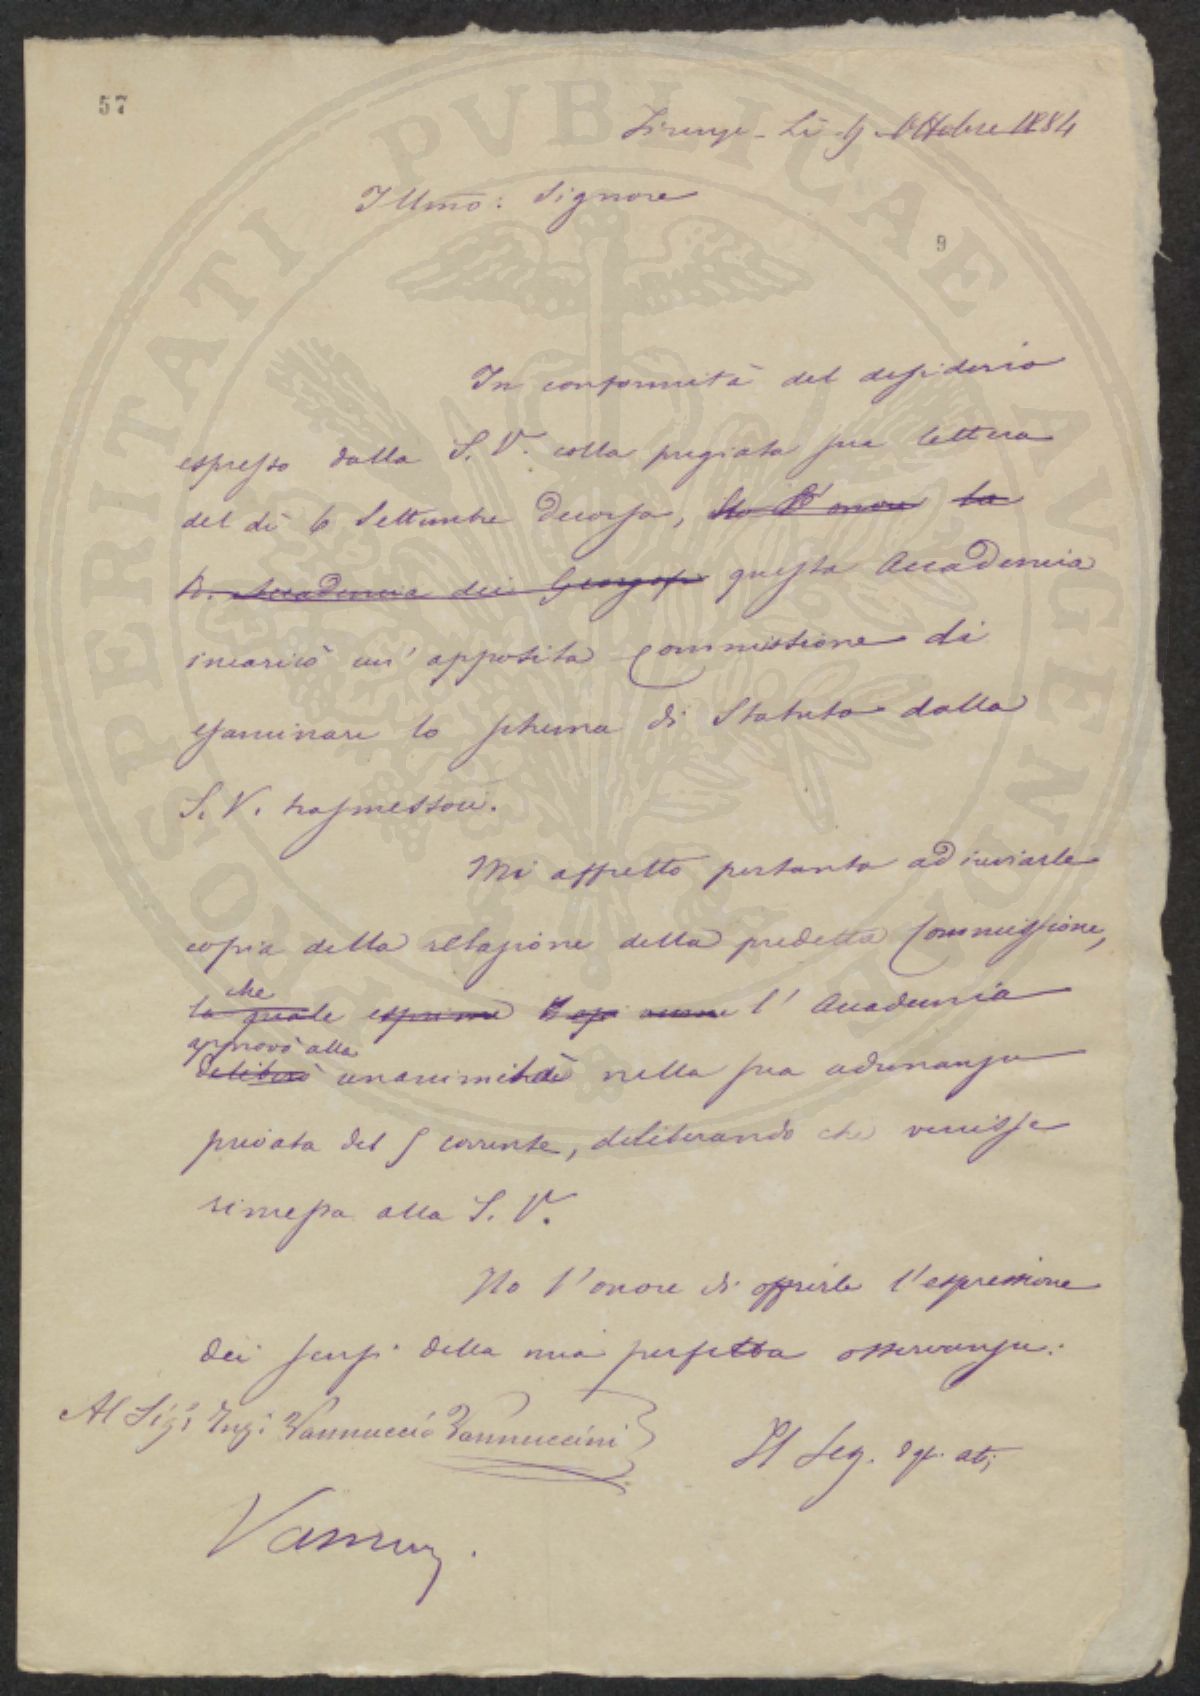 57
Firenze - Li 9 Ottobre 1884
Illmo: Signore
9
In conformità del desiderio
espresso dalla S. V. colla pregiata sua lettera
del dì 6 Settembre decorso, Ho l'onore la
R. Accademia dei Georgof questa Accademia
incaricò un' apposita Commissione di
esaminare lo schema di Statuto dalla
S. V. trasmessole.
Mi affretto pertanto ad inviarle
copia della relazione della predetta Commissione,
che
la quale esprime l' Accademia
approvò alla
deliberò unanimità nella sua adunanza
privata del 5 corrente, deliberando che venisse
rimessa alla S. V.
Ho l'onore di offrirle l'espressione
dei sensi della mia perfetta osservanza.
Al Sigr Ingr Vannuccio Vannuccini
Il Seg. degl. atti
PROSPERITATI PVBLICAE AVGENDAE